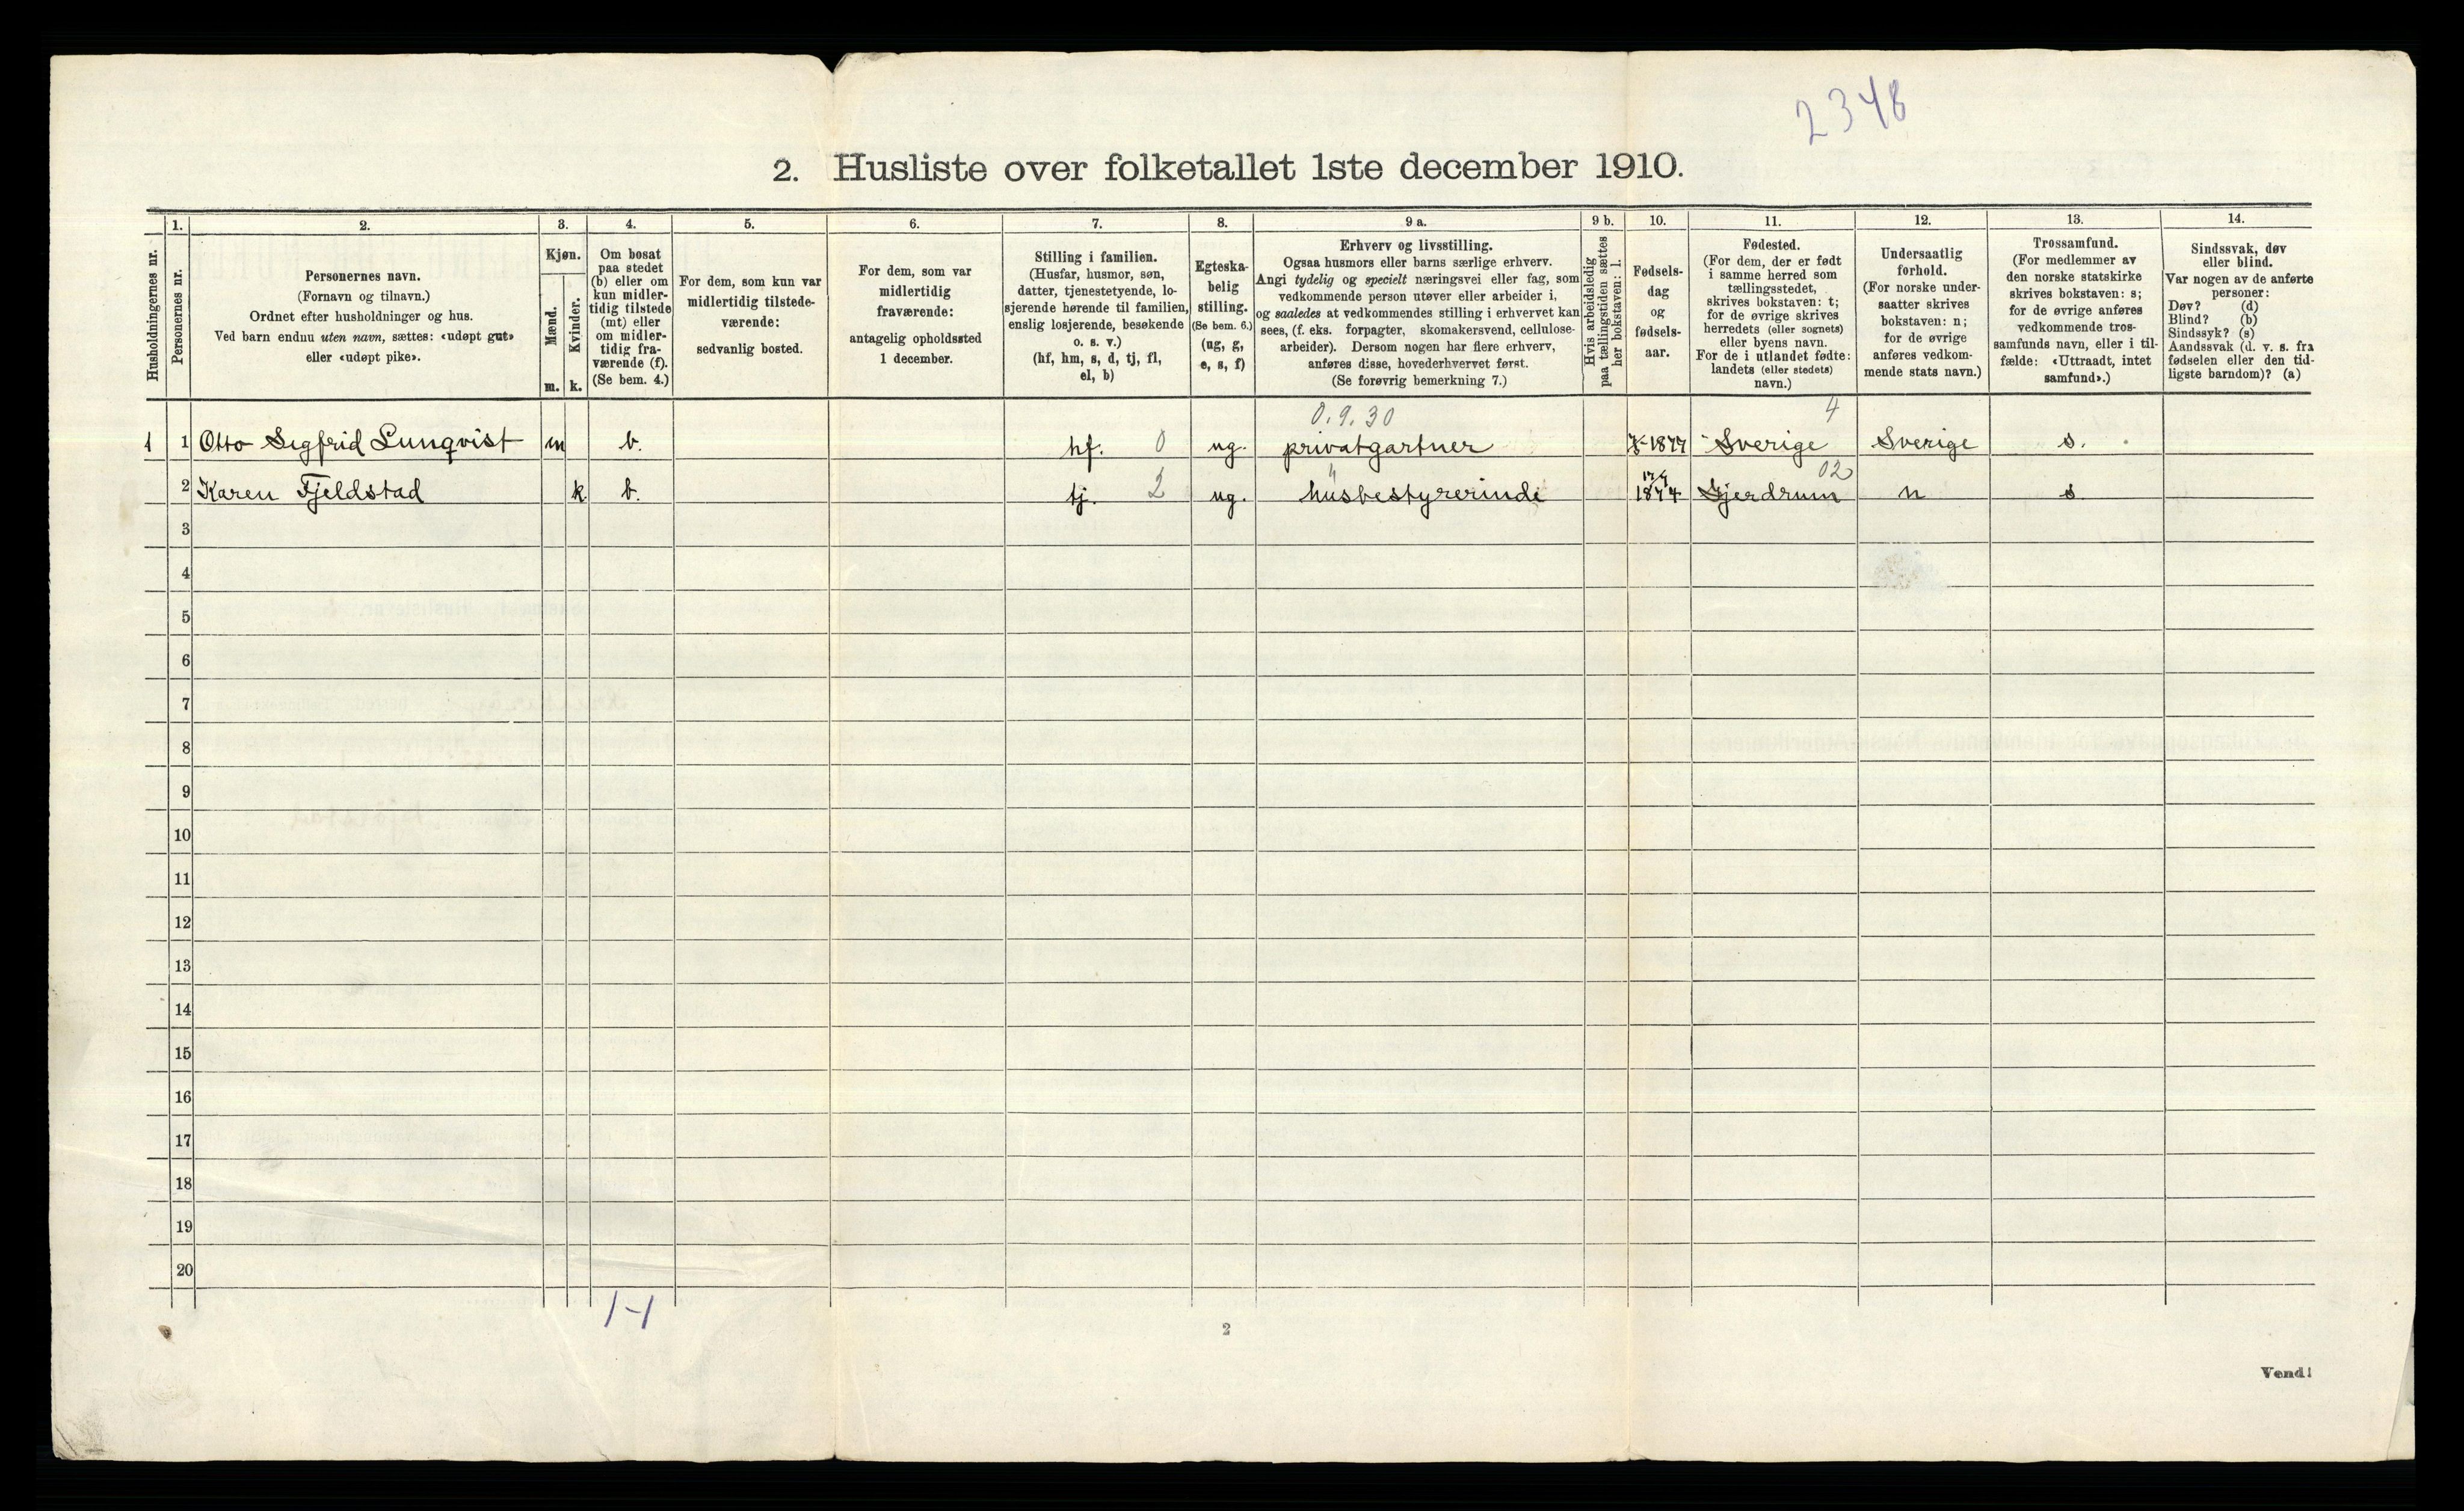 2348
2. Husliste over folketallet 1ste december 1910.
Husholdningernes nr.
1.
Personernes nr.
2.
Personernes navn.
(Fornavn og tilnavn.)
Ordnet efter husholdninger og hus.
Ved barn endnu uten navn, sættes: «udøpt gut»
eller «udøpt pike».
3.
Kjøn.
Mænd.
m.
Kvinder.
k.
4.
Om bosat
paa stedet
(b) eller om
kun midler-
tidig tilstede
(mt) eller
om midler-
tidig fra-
værende (f).
(Se bem. 4.)
5.
For dem, som kun var
midlertidig tilstede-
værende:
sedvanlig bosted.
6.
For dem, som var
midlertidig
fraværende:
antagelig opholdssted
1 december.
7.
Stilling i familien.
(Husfar, husmor, søn,
datter, tjenestetyende, lo-
sjerende hørende til familien,
enslig losjerende, besøkende
o. s. v.)
(hf, hm, s, d, tj, fl,
el, b)
8.
Egteska-
belig
stilling.
(Se bem. 6.)
(ug, g,
e, s, f)
9 a.
Erhverv og livsstilling.
Ogsaa husmors eller barns særlige erhverv.
Angi tydelig og specielt næringsvei eller fag, som
vedkommende person utøver eller arbeider i,
og saaledes at vedkommendes stilling i erhvervet kan
sees, (f. eks. forpagter, skomakersvend, cellulose-
arbeider). Dersom nogen har flere erhverv,
anføres disse, hovederhvervet først.
(Se forøvrig bemerkning 7.)
9 b.
Hvis arbeidsledig
paa tællingstiden sættes
her bokstaven: l.
10.
Fødsels-
dag
og
fødsels-
aar.
11.
Fødested.
(For dem, der er født
i samme herred som
tællingsstedet,
skrives bokstaven: t;
for de øvrige skrives
herredets (eller sognets)
eller byens navn.
For de i utlandet fødte:
landets (eller stedets)
navn.)
12.
Undersaatlig
forhold.
(For norske under-
saatter skrives
bokstaven: n;
for de øvrige
anføres vedkom-
mende stats navn.)
13.
Trossamfund.
(For medlemmer av
den norske statskirke
skrives bokstaven: s;
for de øvrige anføres
vedkommende tros-
samfunds navn, eller i til-
fælde: «Uttraadt, intet
samfund».)
14.
Sindssvak, døv
eller blind.
Var nogen av de anførte
personer:
Døv? (d)
Blind? (b)
Sindssyk? (s)
Aandssvak (d. v. s. fra
fødselen eller den tid-
ligste barndom)? (a)
0.9.30 4
1 1 Otto Segfrid Lunqvist m b. hf. 0 ug. privatgartner 1877 Sverige Sverige s.
" 17/4 02
2 Karen Fjeldstad k b. tj. 2 ug. husbestyrerinde 1874 Gjerdrum n s
3
4
5
6
7
8
9
10
11
12
13
14
15
16
17
18
19
20
1-1
2
Vend!